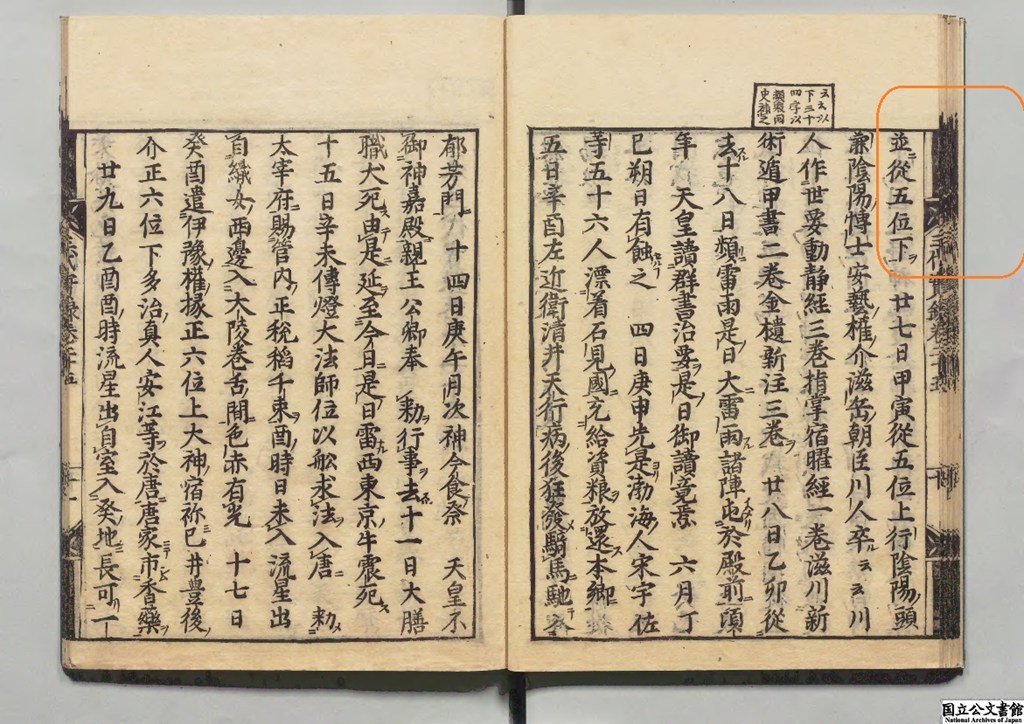 云云以
下三十
四字以
類聚國
史補之
並從五位下ヲ 廿七日甲寅從五位上行陰陽ノ頭
兼陰陽ノ博士安藝ノ權ノ介滋岳ノ朝臣川人卒ス云云川
人作世要動靜經三卷指掌宿曜經一卷滋川新
術遁甲書二卷金樻新注三卷ヲ 廿八日乙卯從
去十八日頻雷雨是ノ日大雷雨諸陣屯於殿前ニ須
年 天皇讀群書治要是ノ日御讀竟焉 六月丁
巳朔日有蝕之 四日庚申先是渤海ノ人宋宇佐
等五十六人漂着石見ノ國充給資粮放還本鄉
五日辛酉左近衛淸井天行病後狂發騎馬馳
郁芳門ノ 十四日庚午月次神今食祭 天皇不
御神嘉殿親王公卿奉 勅行事去十一日大膳
職犬死由是延至今日是ノ日雷西東京ノ牛震死
十五日辛未傳燈大法師位以舩求法入唐 勅
太宰府賜管內ノ正稅稻千束ヲ酉ノ時日未入流星出
自織女西邊入大陵卷舌間色赤有光 十七日
癸酉遣伊豫ノ權ノ掾正六位上大神ノ宿祢已井豊後ノ
介正六位下多治真人安江等於唐唐家市香藥
廿九日乙酉酉ノ時流星出自室入癸地長可一
三代實錄卷二十五
三代實錄卷二十五
十
十一
国立公文書館
National Archives of Japan